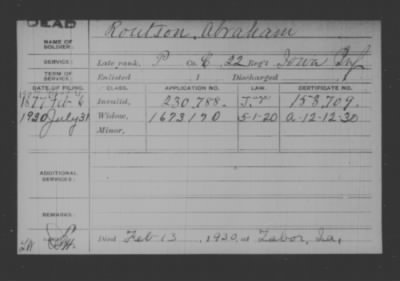 DEAD
NAME OF SOLDIER: Routson, Abraham
SERVICE: Late rank, P Co. E, 22 Reg't Iowa Inf
TERM OF SERVICE: Enlisted 1 Discharged
DATE OF FILING. CLASS. APPLICATION NO. LAW. CERTIFICATE NO.
1877 Feb 6 Invalid, 230,788. 158,709.
1930 July 31 Widow, 1673170 5-1-20 A-12-12-30
Minor,
ADDITIONAL SERVICES:
REMARKS:
Died Feb 13, 1930, at Tabor, Ia,